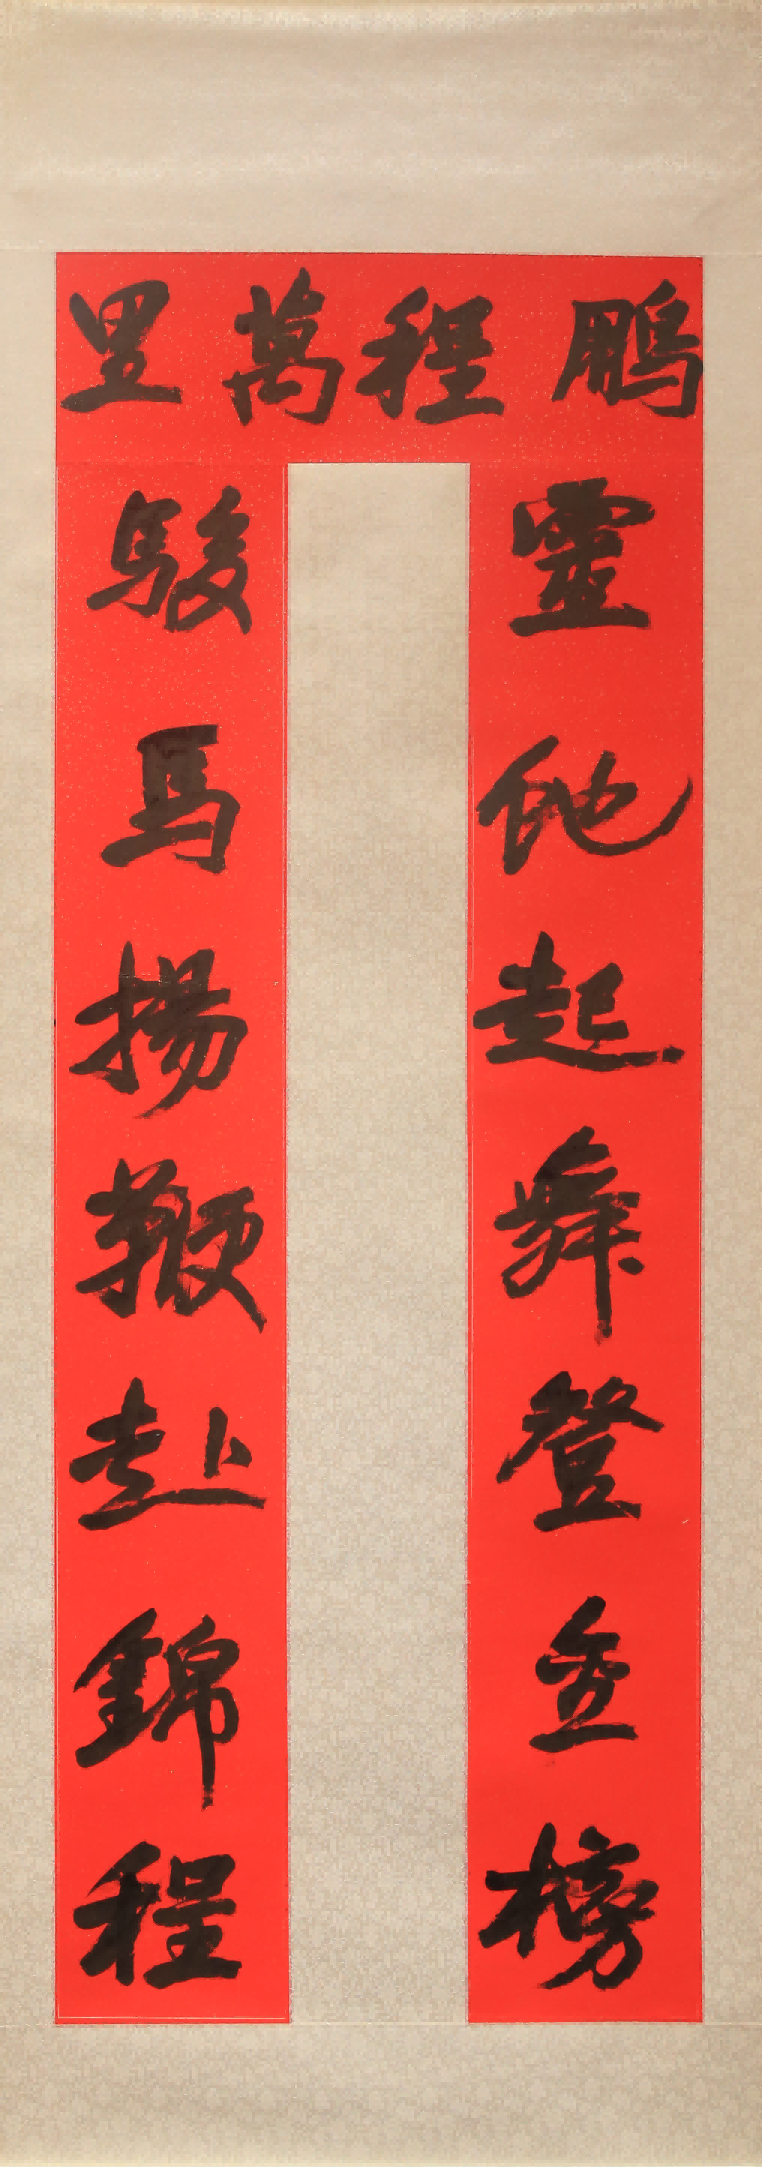 鵬程萬里
靈虵起舞登金榜
駿馬揚鞭赴錦程